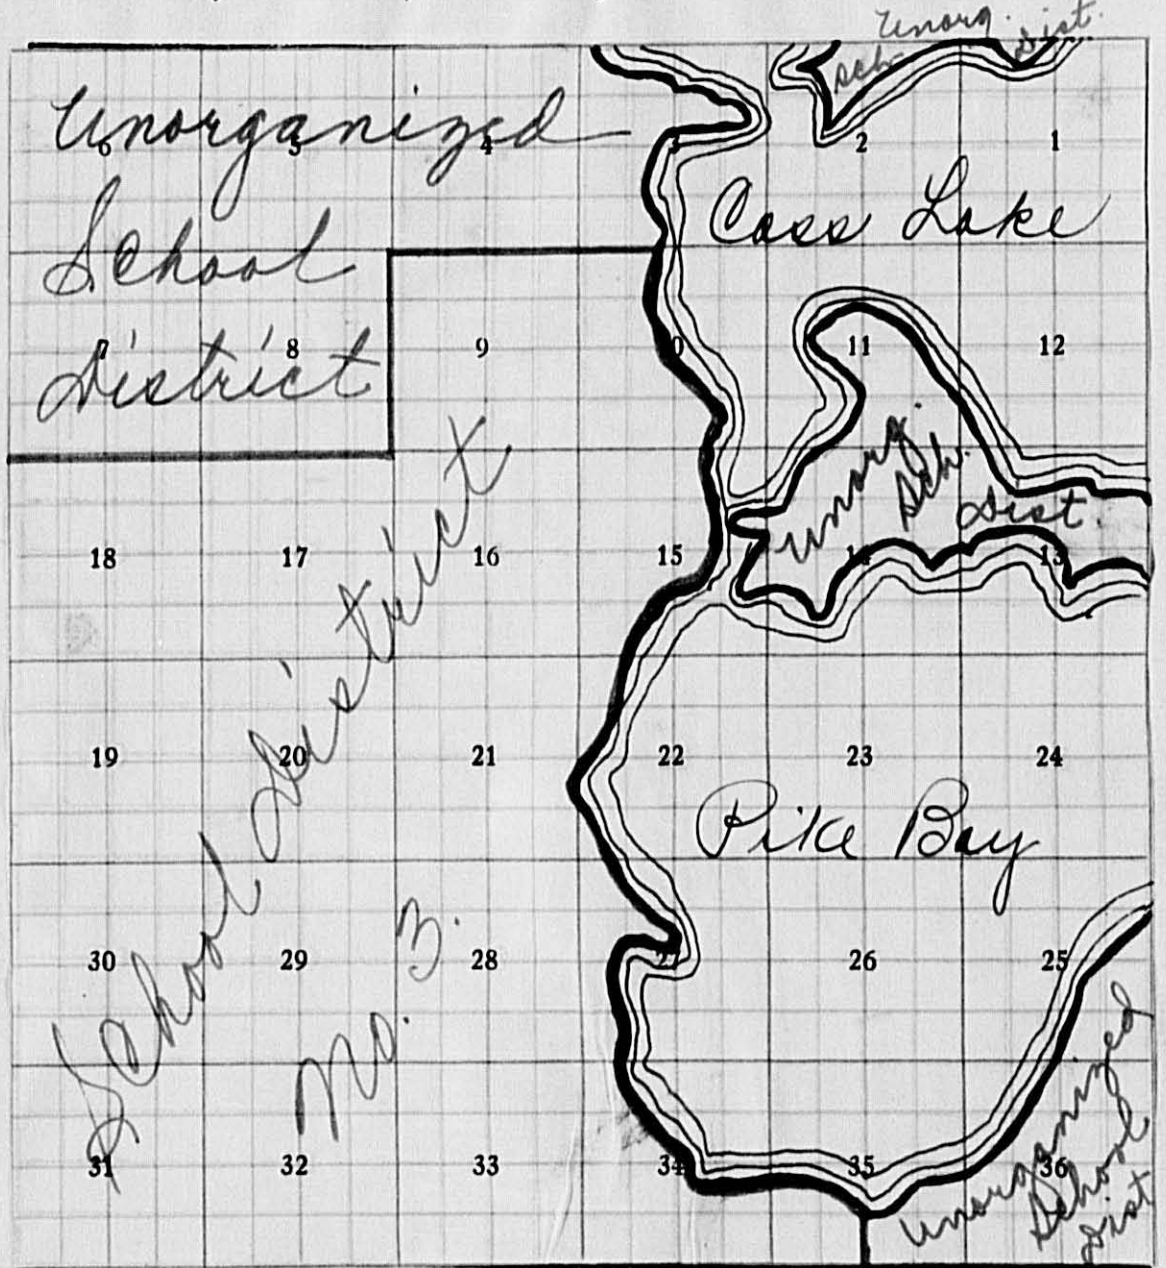 Unorg.
Sch. Dist.
Unorganized
School
District
6 5 4 3 2 1
Cass Lake
7 8 9 0 11 12
Unorg.
Sch.
Dist.
18 17 16 15 14 13
School District
No. 3.
19 20 21 22 23 24
Pike Bay
30 29 28 27 26 25
31 32 33 34 35 36
Unorganized
School
Dist